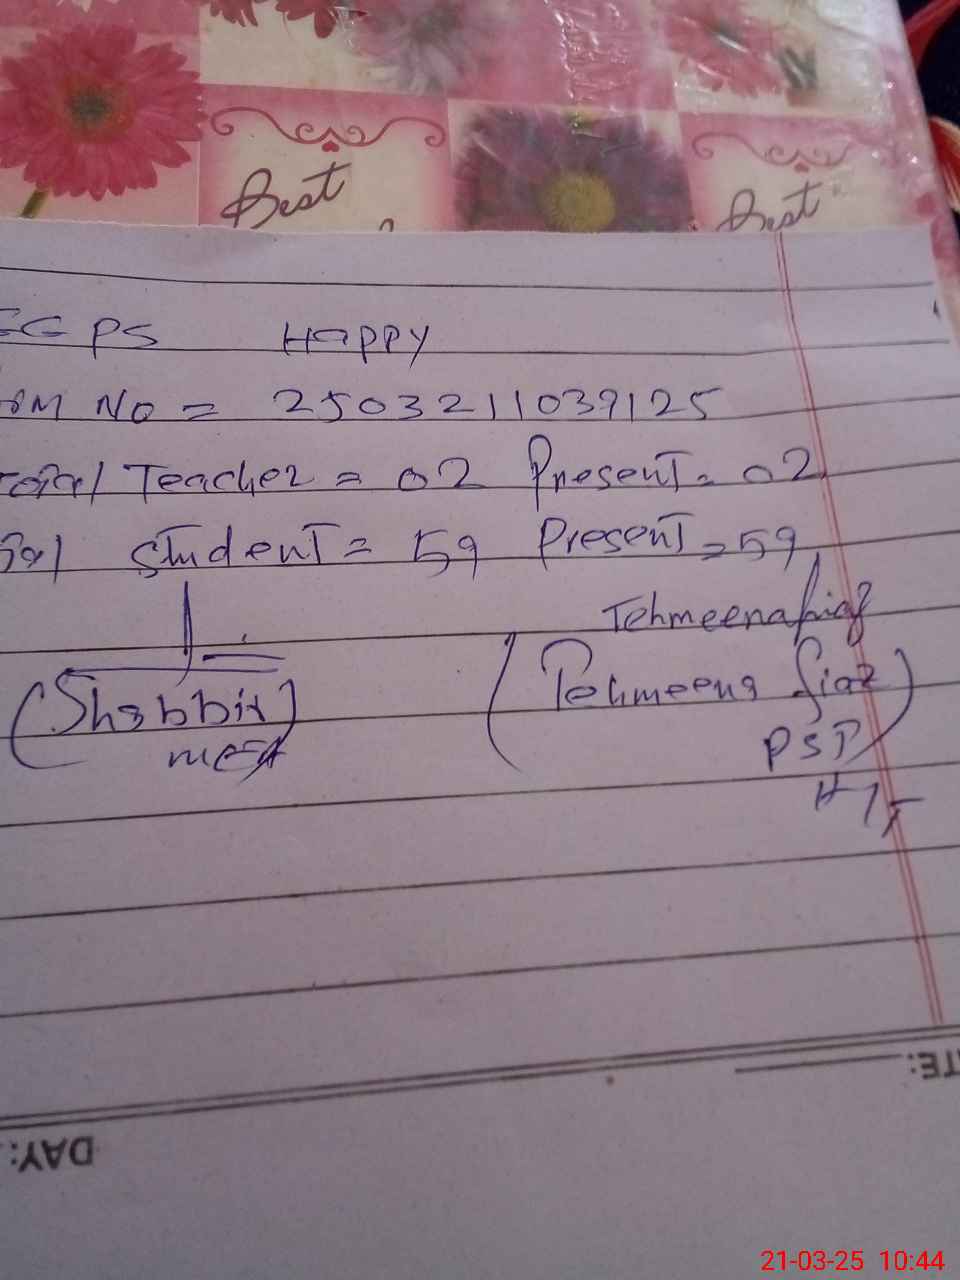 Best Best
GPS Happy
No = 2503211039125
Total Teacher = 02 Present = 02
Student = 59 Present = 59
Tehmeena fiaz
(Shabbir) (Tehmeena fiaz)
MEA PST
H/T
DAY:
21-03-25 10:44